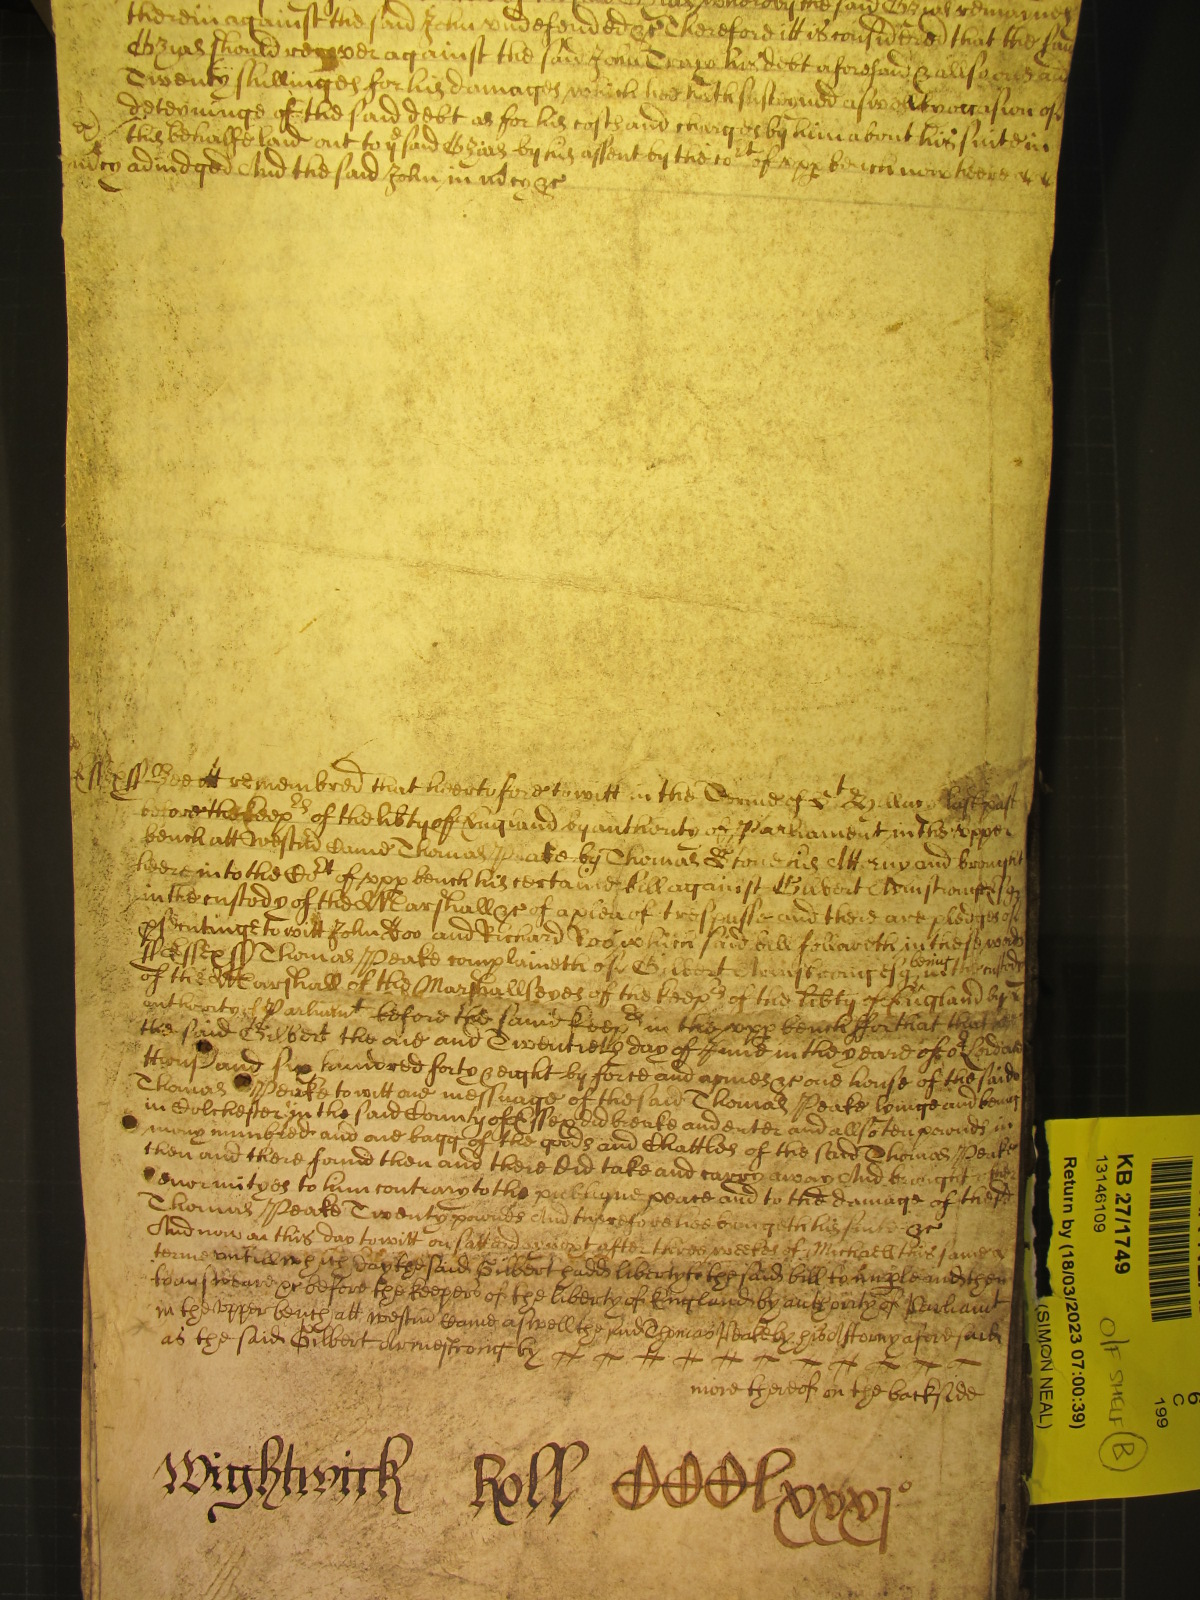 therein against the said John undefended &c Therefore itt is considered that the said
should recover against the said John Tracy his debt aforesaid & allsoe
Twenty shillinges for his damages which hee hath susteyned aswell by occasion of
deteyninge of the said debt as for his costs and charges by him about his suite in
this behalfe laid out to ye said by his assent by the cort of upp bench now heere
mcy adiudged And the said John in mcy &c
Essex ss Bee itt remembred that heertofore to witt in the Terme of St Hillary last past
before the keeprs of the libty of England by authority of Parliament in the upper
bench att Westm Came Thomas Peake by Thomas Stone his Attorny and brought
heere into the Cort of upp bench his certaine bill against Gilbert Armstronge Esqr
in the custody of the Marshall &c of a plea of trespasse and there are pledges of
psecutinge to witt John Doo and Richard Roo which said bill followeth in these words
ss Essex ss Thomas Peake complaineth of Gilbert Armstronge Esqr being in the custody
of the Marshall of the Marshallseyes of the keeprs of the libty of England by
authority of Parliamt before the same keeprs in the upp bench ffor that
the said Gilbert the one and Twentieth day of June in the yeare of or Lord one
thousand six hundred forty & eight by force and armes &c one house of the said
Thomas Peake to witt one messuage of the said Thomas Peake lyinge and being
in Colchester in the said County of Essex did breake and enter and allso ten pounds in
mony numbred and one bagg of the goods and Chattles of the said Thomas Peake
then and there found then and there did take and carry away And brought other
enormityes to him contrary to the publique peace and to the damage of the sd
Thomas Peake Twenty pounds And therefore hee bringeth his suite &c
And now on this day to witt on satterday next after three weekes of Michaell this same
terme untill which day the said Gilbert hadd liberty to the said bill to imple and then
to answeare &c before the keepers of the liberty of England by authority of Parliamt
in the upper bench att Westm Came aswell the said Thomas Peake by his Attorny aforesaid
as the said Gilbert Armestrong by
more thereof on the backside
Wightwick Roll CCClxxxj°
KB 27/1749
13146109
Return by (18/03/2023 07:00:39)
(SIMON NEAL)
O/F SHELF B
C
199